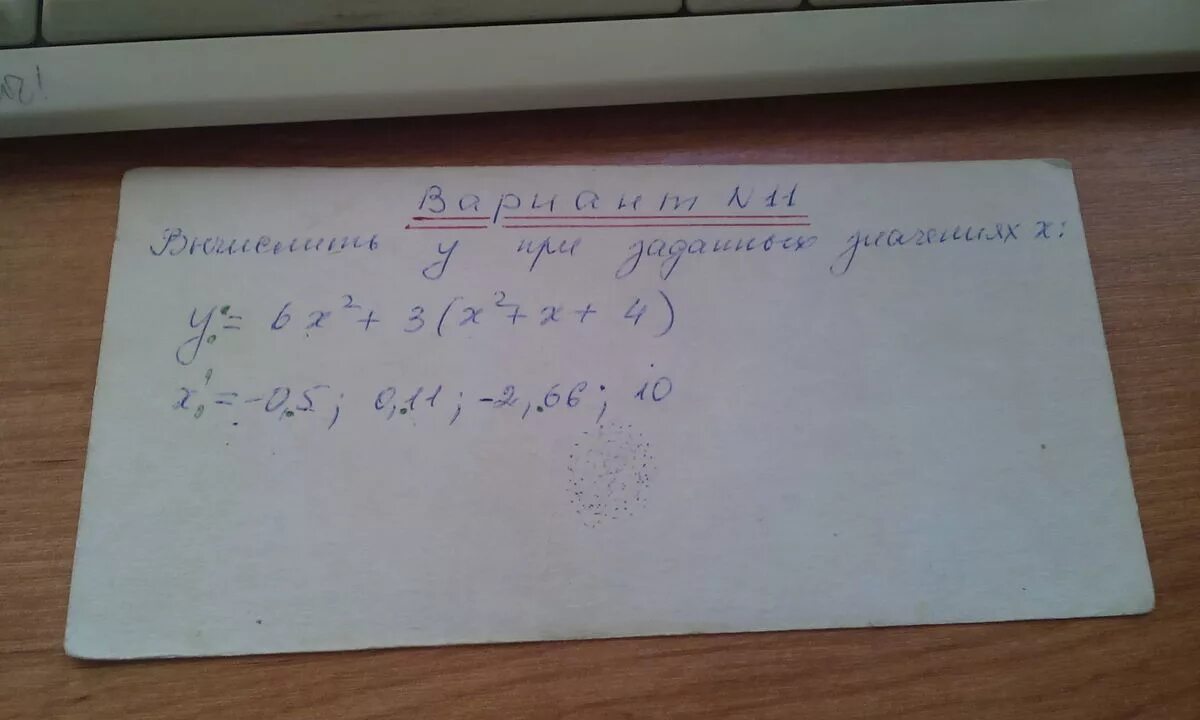 Вариант N11
Вычислить y при заданных значениях x:
y = 6x² + 3(x² + x + 4)
x = -0,5; 0,11; -2,66; 10